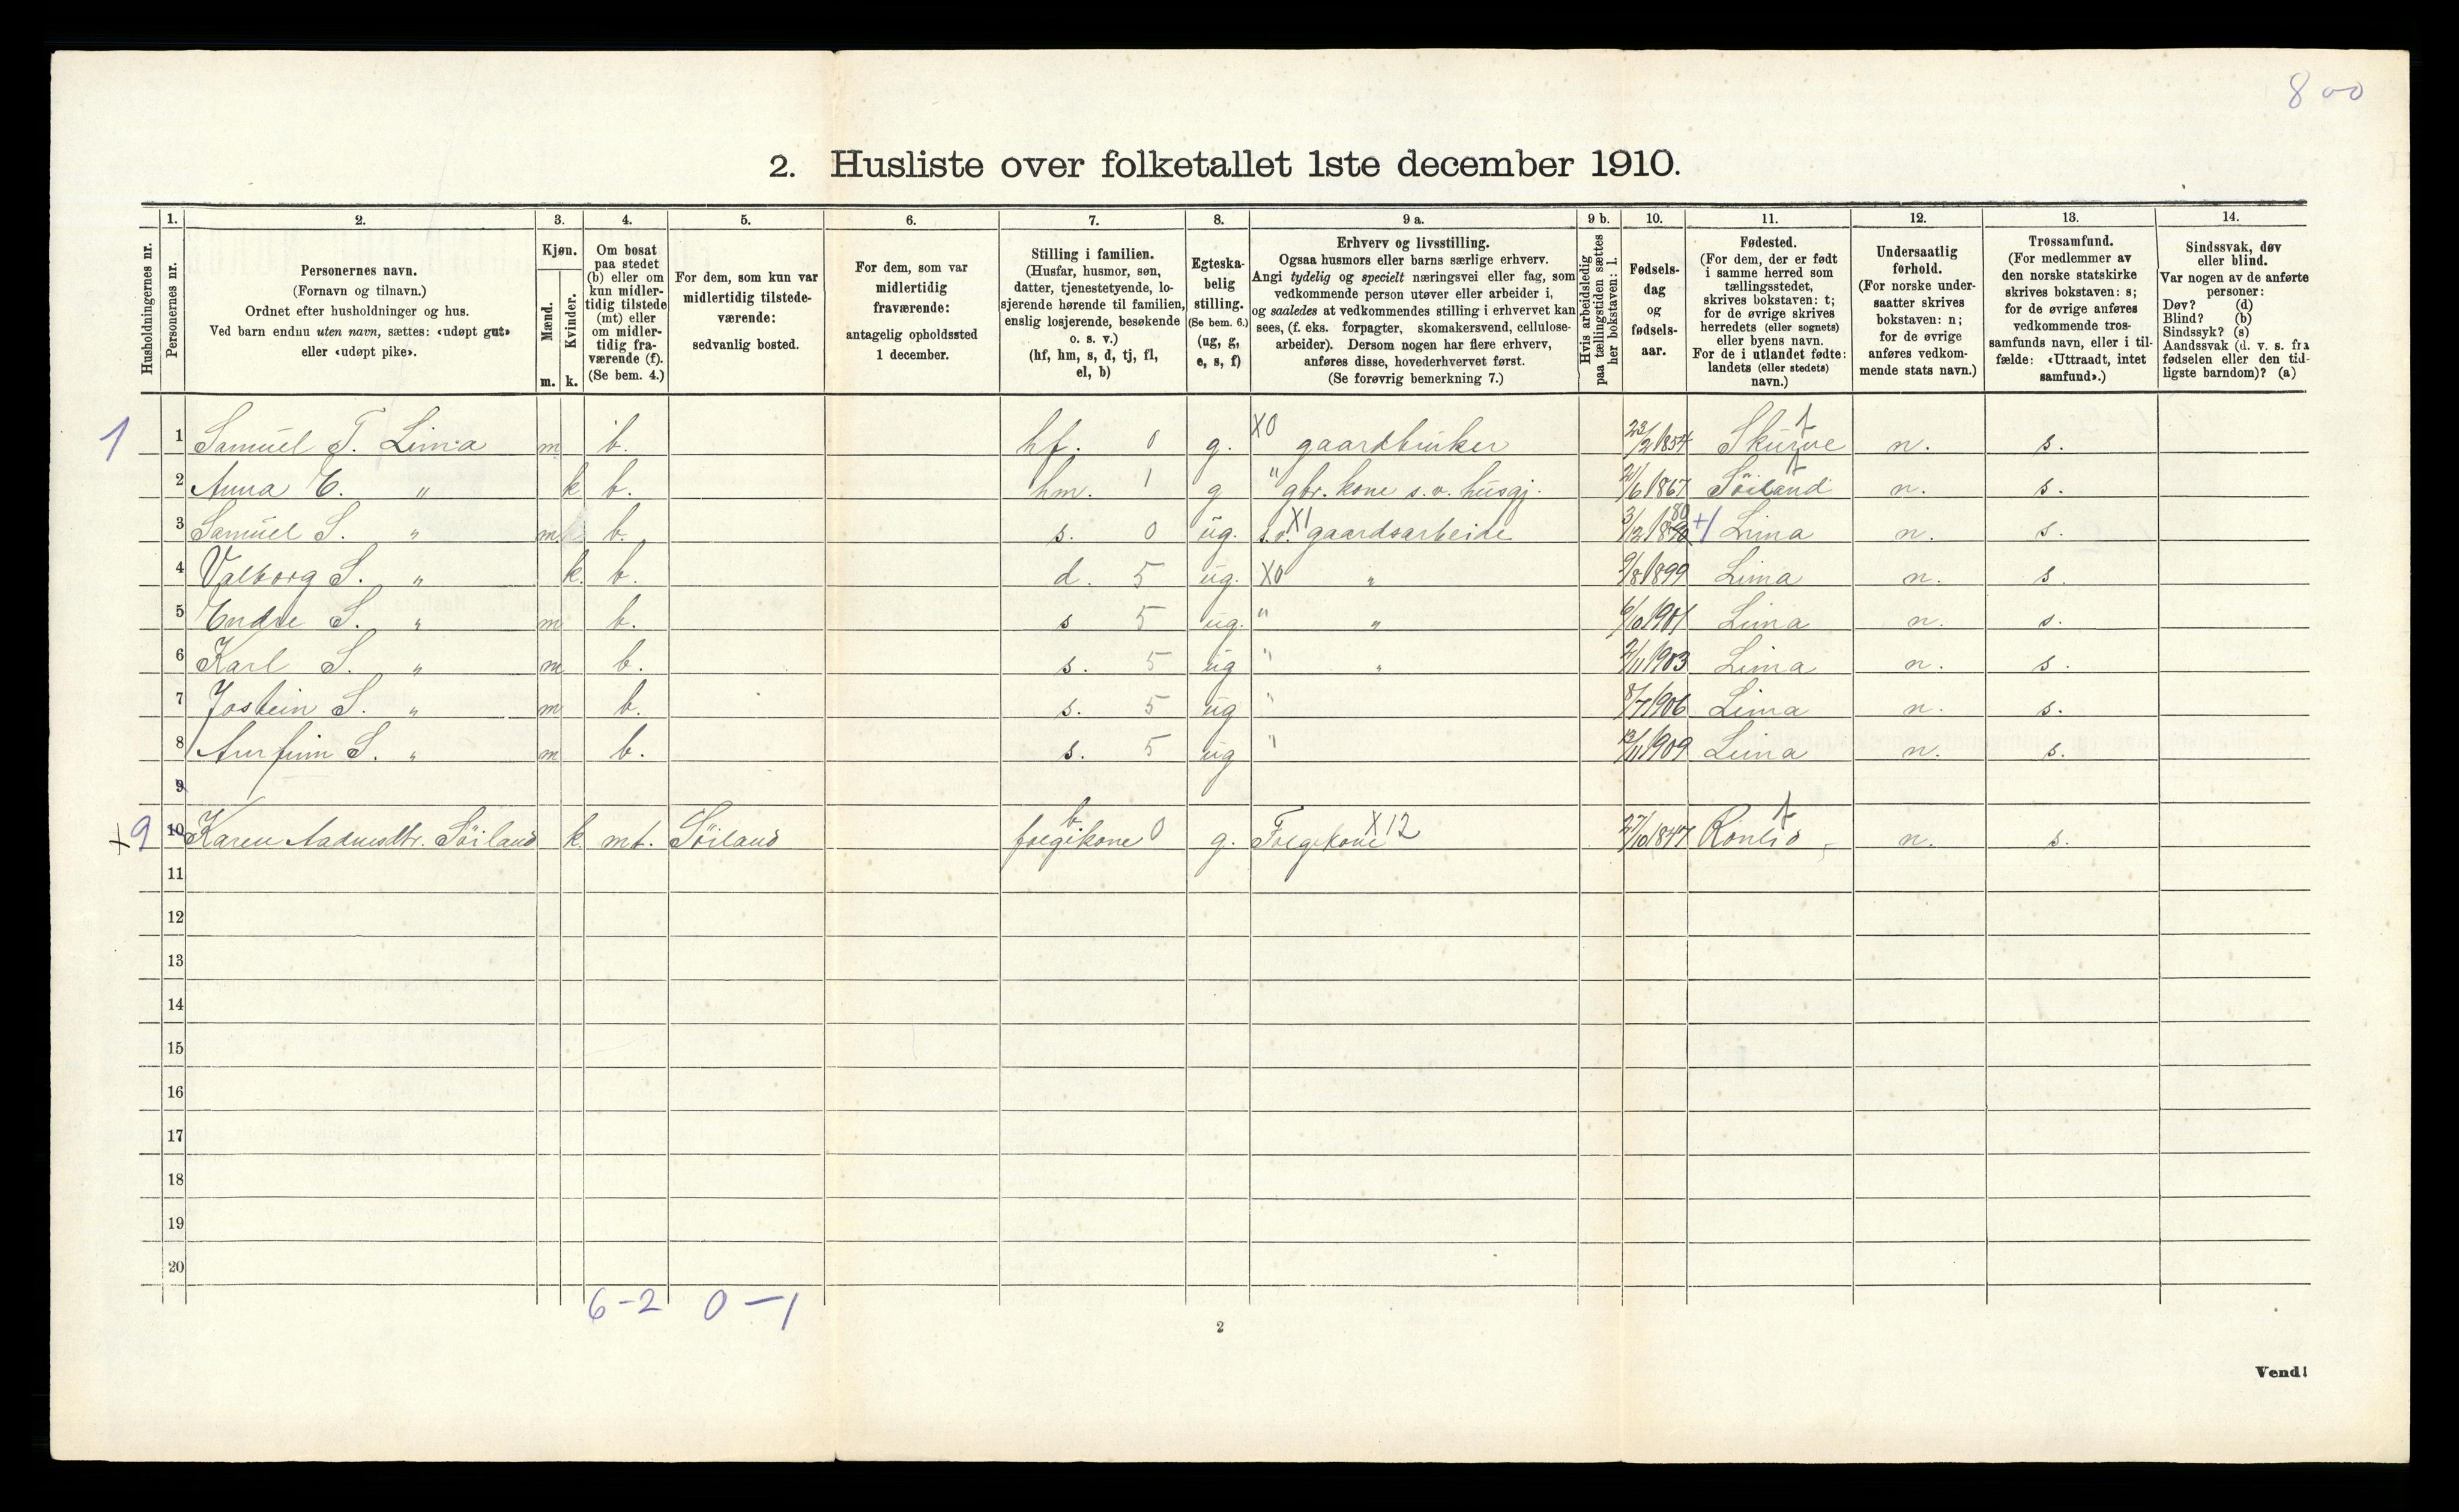 8 00
2. Husliste over folketallet 1ste december 1910.
1. 2. 3. 4. 5. 6. 7. 8. 9 a. 9 b. 10. 11. 12. 13. 14.
Husholdningernes nr.
Personernes nr.
Personernes navn.
(Fornavn og tilnavn.)
Ordnet efter husholdninger og hus.
Ved barn endnu uten navn, sættes: «udøpt gut»
eller «udøpt pike».
Kjøn.
Mænd.
m.
Kvinder.
k.
Om bosat
paa stedet
(b) eller om
kun midler-
tidig tilstede
(mt) eller
om midler-
tidig fra-
værende (f).
(Se bem. 4.)
For dem, som kun var
midlertidig tilstede-
værende:
sedvanlig bosted.
For dem, som var
midlertidig
fraværende:
antagelig opholdssted
1 december.
Stilling i familien.
(Husfar, husmor, søn,
datter, tjenestetyende, lo-
sjerende hørende til familien,
enslig losjerende, besøkende
o. s. v.)
(hf, hm, s, d, tj, fl,
el, b)
Egteska-
belig
stilling.
(Se bem. 6.)
(ug, g,
e, s, f)
Erhverv og livsstilling.
Ogsaa husmors eller barns særlige erhverv.
Angi tydelig og specielt næringsvei eller fag, som
vedkommende person utøver eller arbeider i,
og saaledes at vedkommendes stilling i erhvervet kan
sees, (f. eks. forpagter, skomakersvend, cellulose-
arbeider). Dersom nogen har flere erhverv,
anføres disse, hovederhvervet først.
(Se forøvrig bemerkning 7.)
Hvis arbeidsledig
paa tællingstiden sættes
her bokstaven: l.
Fødsels-
dag
og
fødsels-
aar.
Fødested.
(For dem, der er født
i samme herred som
tællingsstedet,
skrives bokstaven: t;
for de øvrige skrives
herredets (eller sognets)
eller byens navn.
For de i utlandet fødte:
landets (eller stedets)
navn.)
Undersaatlig
forhold.
(For norske under-
saatter skrives
bokstaven: n;
for de øvrige
anføres vedkom-
mende stats navn.)
Trossamfund.
(For medlemmer av
den norske statskirke
skrives bokstaven: s;
for de øvrige anføres
vedkommende tros-
samfunds navn, eller i til-
fælde: «Uttraadt, intet
samfund».)
Sindssvak, døv
eller blind.
Var nogen av de anførte
personer:
Døv? (d)
Blind? (b)
Sindssyk? (s)
Aandssvak (d. v. s. fra
fødselen eller den tid-
ligste barndom)? (a)
1 1 Samuel T. Lima m b. hf. 0 g. X0 gaardbruker 23/2 1854 Skurve t n. s.
2 Anna E. " k b. hm. 1 g " gbr. kone s.v. husgj. 21/6 1867 Söiland n. s.
3 Samuel S. " m b. s. 0 ug. s.v. X1 gaardsarbeide 3/12 1890 80 +1 Lima n. s.
4 Valborg S. " k. b. d. 5 ug. X0 " 9/8 1899 Lima n. s.
5 Endre S. " m b. s 5 ug. " " 6/10 1901 Lima n. s.
6 Karl S. " m b. s. 5 ug " " 2/11 1903 Lima n. s.
7 Jostein S. " m b. s. 5 ug " 8/7 1906 Lima n. s.
8 Arnfinn S. " m b. s. 5 ug " 13/11 1909 Lima n. s.
9
+ 9 10 Karen Aadnesdtr. Söiland k mt. Söiland b. folgekone 0 g. Folgekone X12 27/10 1847 Rönlid t n. s.
11
12
13
14
15
16
17
18
19
20
6-2 0-1
2
Vend!